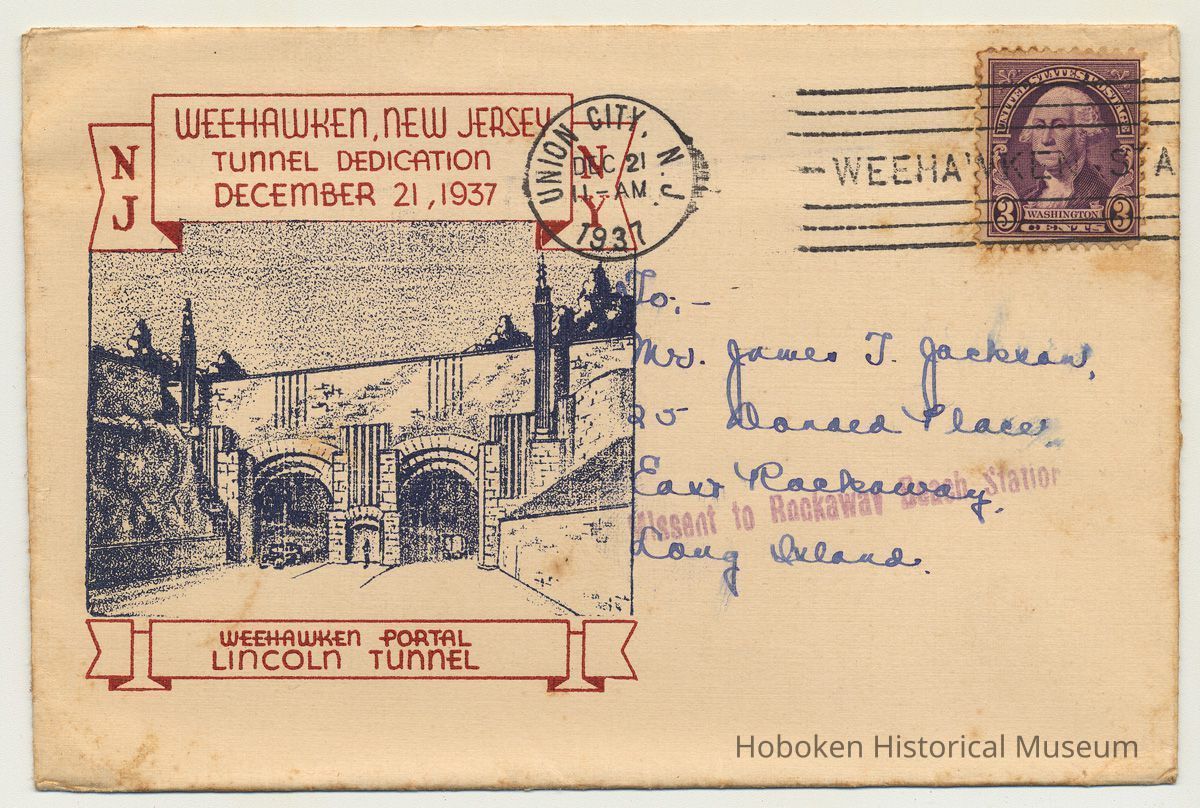 WEEHAWKEN, NEW JERSEY
TUNNEL DEDICATION
DECEMBER 21, 1937
N J
N Y
UNION CITY, N. J.
DEC 21
11-AM
1937
WEEHAWKEN. STA
UNITED STATES POSTAGE
3 WASHINGTON 3
CENTS
To:-
Mr. James T. Jackson,
25 Donald Place,
East Rockaway,
Missent to Rockaway Beach Station
Long Island.
WEEHAWKEN PORTAL
LINCOLN TUNNEL
Hoboken Historical Museum